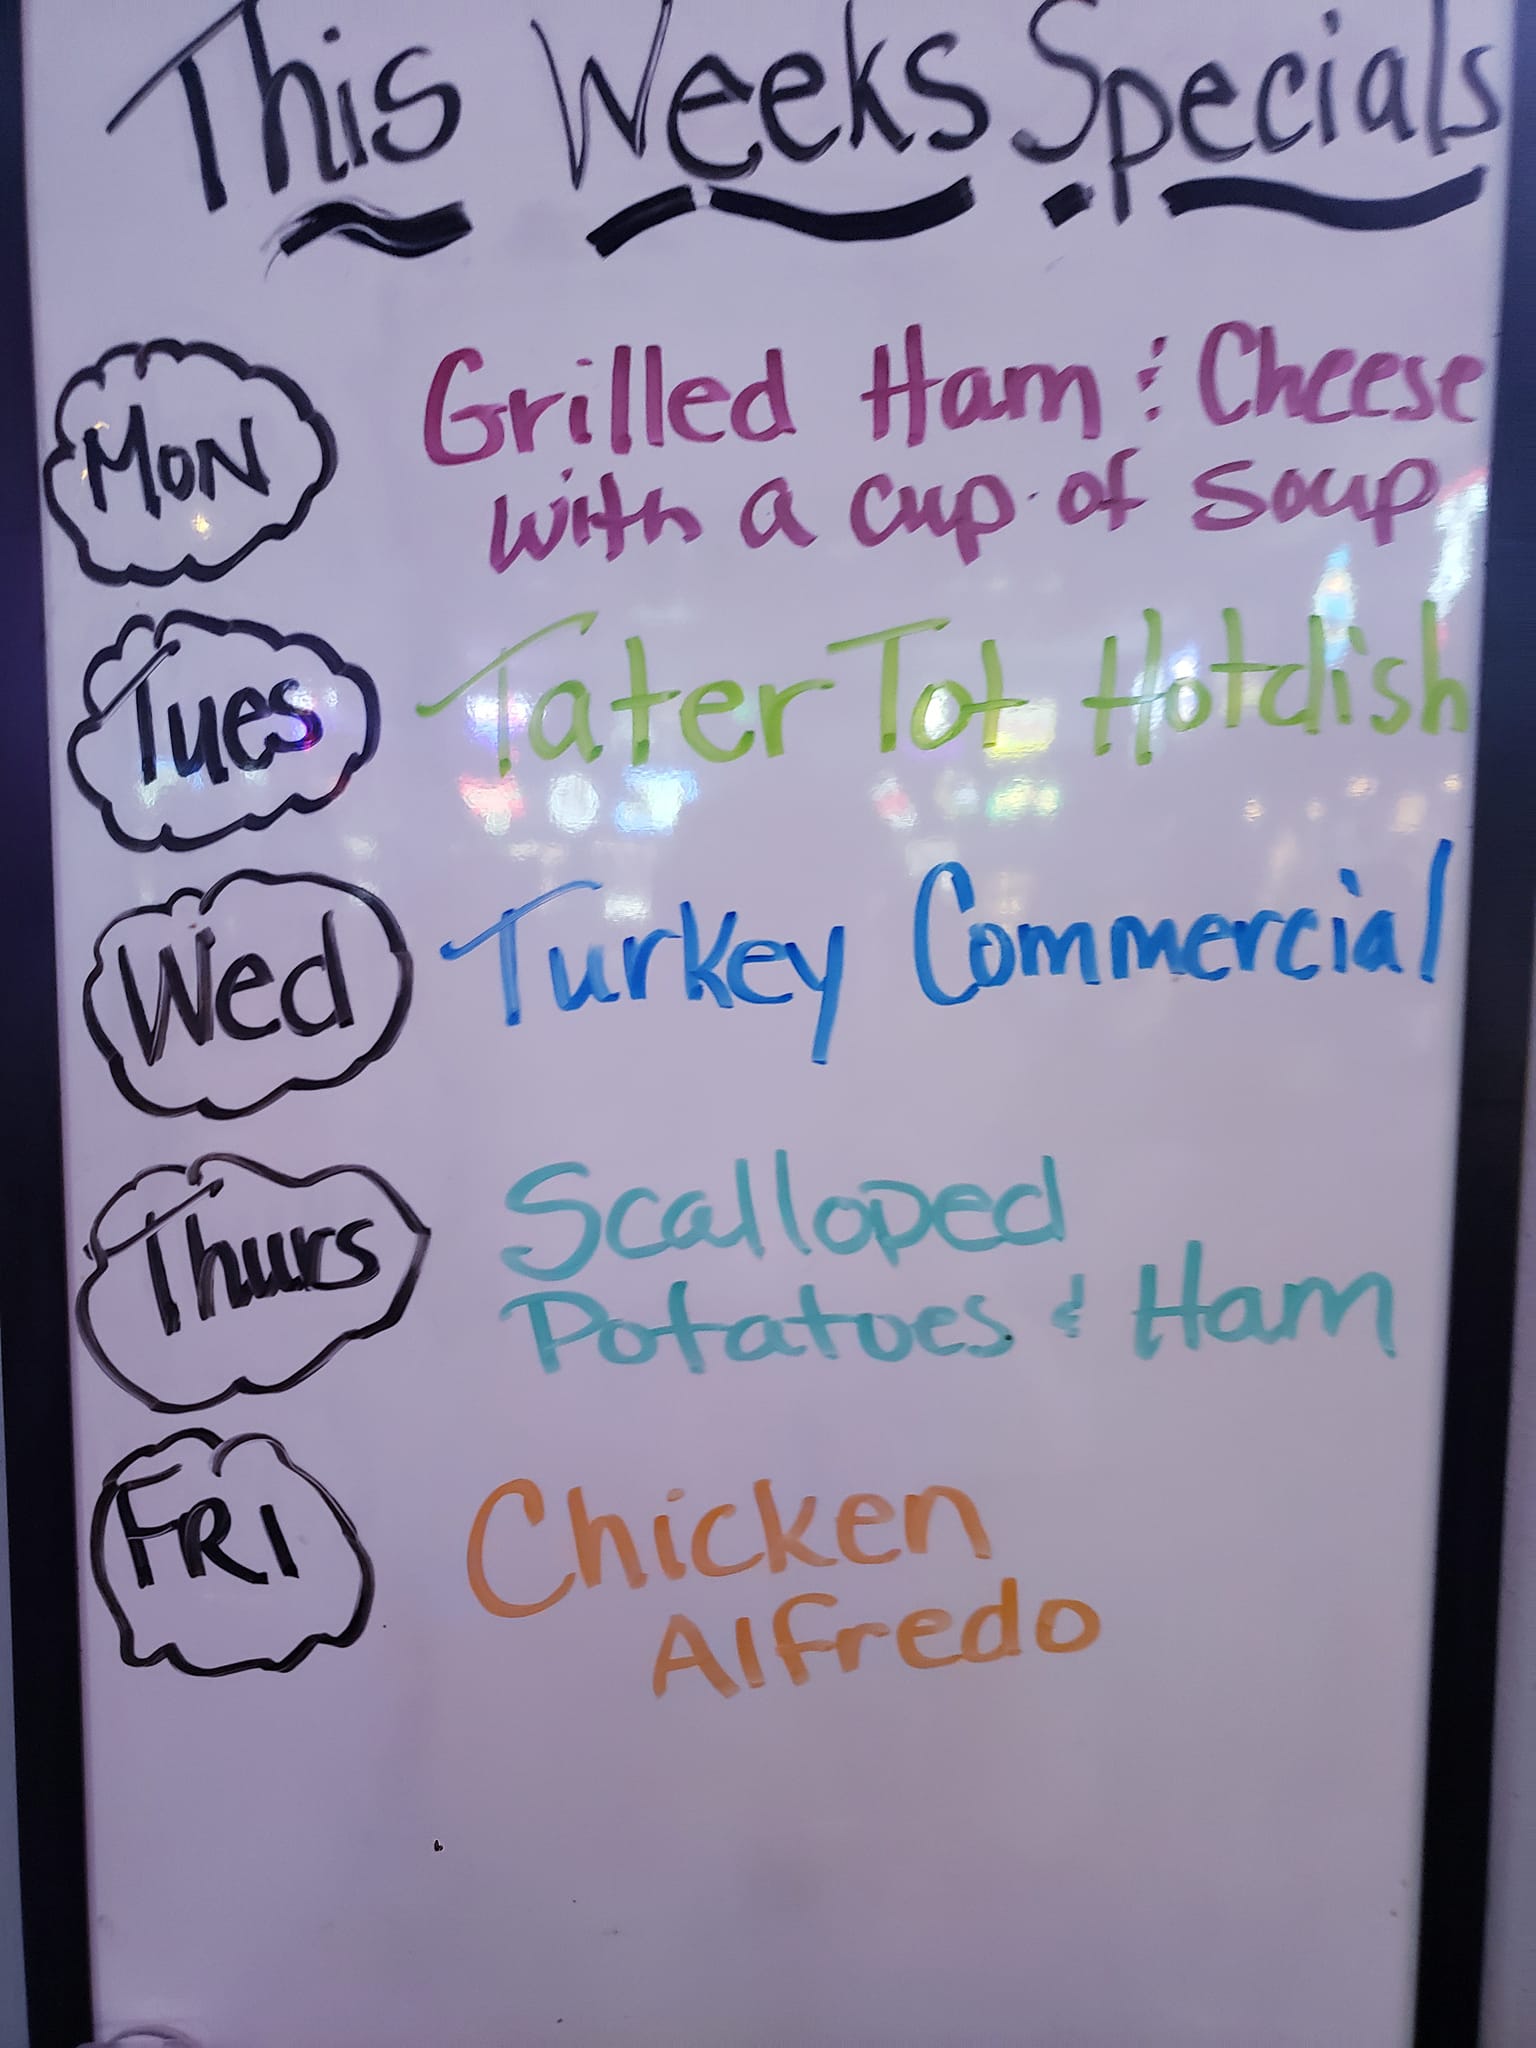 This Weeks Specials
Mon
Grilled Ham & Cheese
with a cup of soup
Tues
Tater Tot Hotdish
Wed
Turkey Commercial
Thurs
Scalloped
Potatoes & Ham
FRI
Chicken
Alfredo